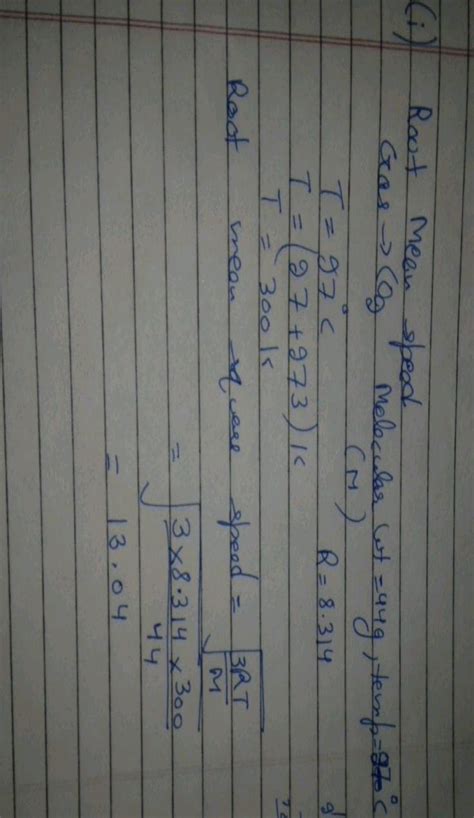 (i) Root Mean speed
Gas → CO2 Molecular wt = 44g, temp = 27°C
(M)
T = 27°C R = 8.314
T = (27 + 273) k
T = 300 k
Root mean square speed = √3RT/M
= √3 × 8.314 × 300/44
= 13.04